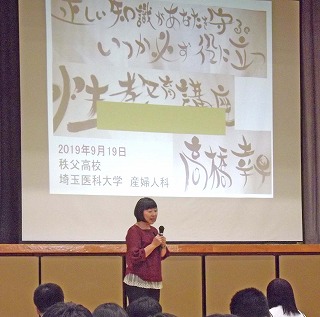 正しい知識があなたを守る。
いつか必ず役に立つ
性教育講座
2019年9月19日
秩父高校
埼玉医科大学 産婦人科
高橋幸子